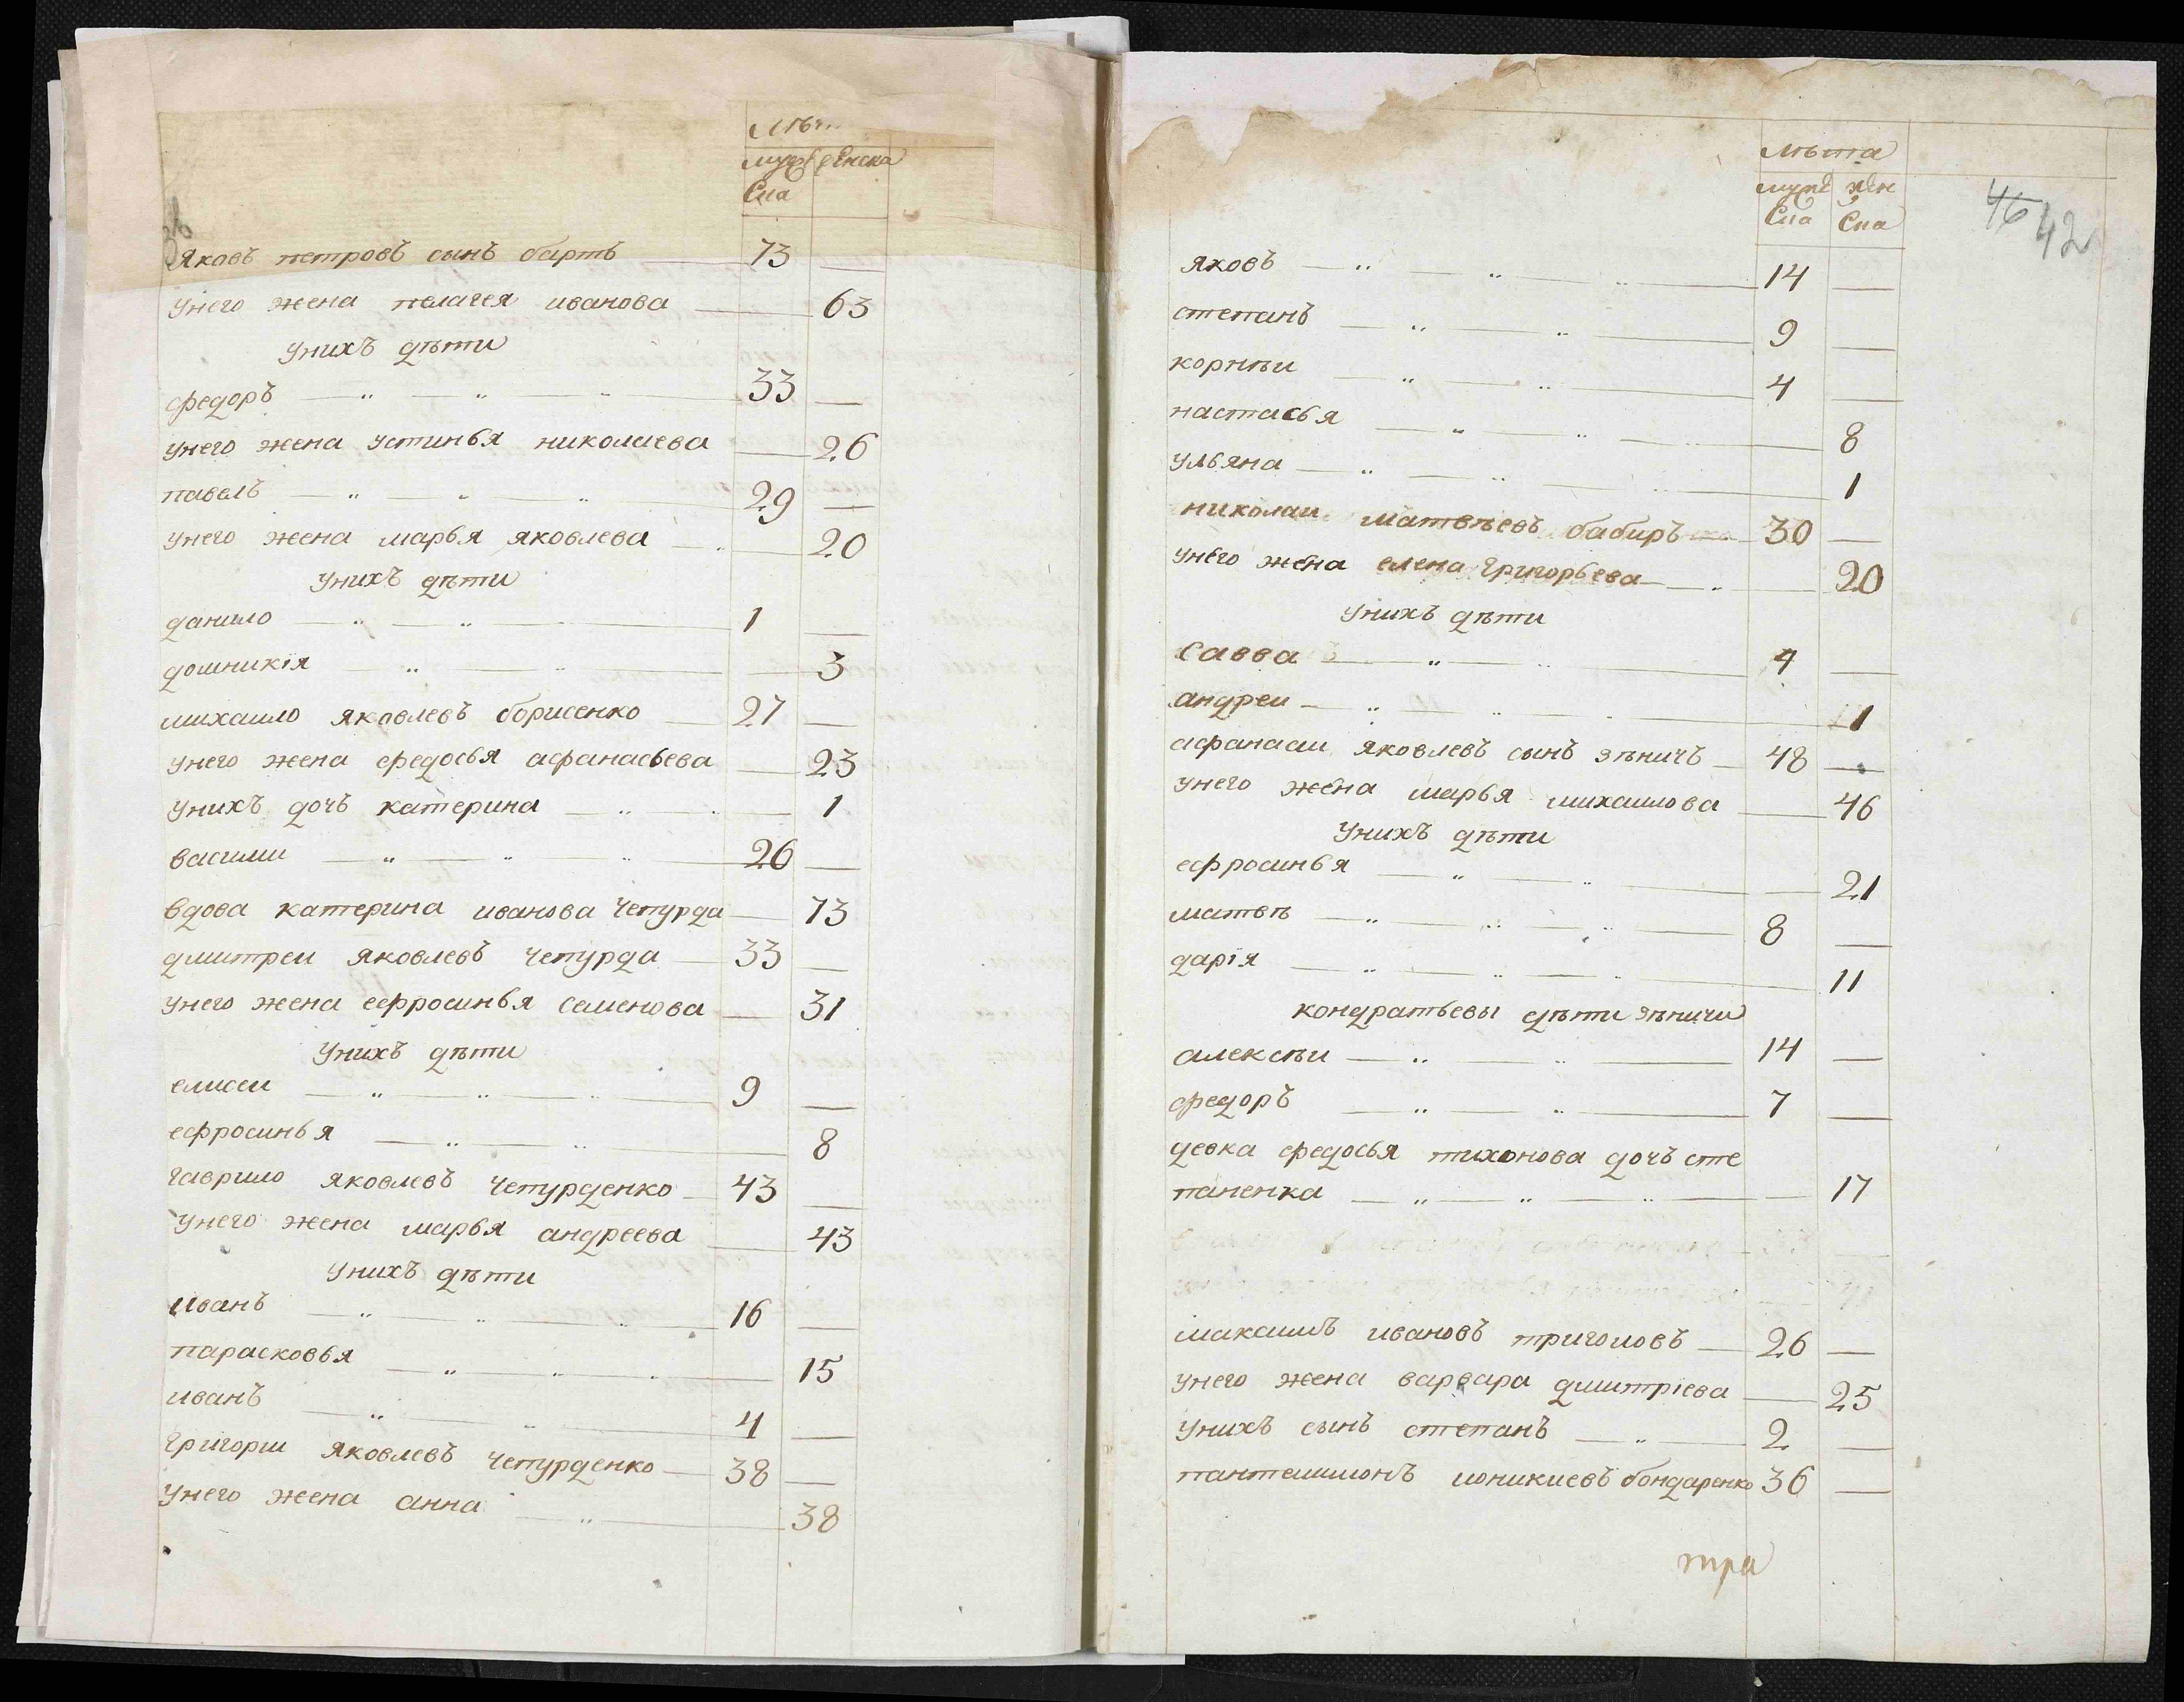 Лѣт
мужеска женска
яковъ петровъ сынъ барть 73
унего жена пелагея иванова 63
унихъ дѣти
федоръ 33
унего жена устинья николаева 26
павелъ 29
унего жена марья яковлева 20
унихъ дѣти
данило 1
домникія 3
михаило яковлевъ борисенко 27
унего жена федосья афанасьева 23
унихъ дочь катерина 1
василии 26
вдова катерина иванова чепурда 73
дмитреи яковлевъ чепурда 33
унего жена ефросинья семенова 31
унихъ дѣти
елисеи 9
ефросинья 8
гаврило яковлевъ чепурденко 43
унего жена марья андреева 43
унихъ дѣти
иванъ 16
парасковья 15
иванъ 4
григории яковлевъ чепурденко 38
унего жена анна 38
Лѣта
46 42
яковъ 14
степанъ 9
корнѣи 4
настасья 8
ульяна 1
николаи матвѣевъ бабиръ 30
унего жена елена григорьева 20
унихъ дѣти
Савва 4
андреи 1
афанасии яковлевъ сынъ зѣничъ 48
унего жена марья михаилова 46
унихъ дѣти
ефросинья 21
матвѣ 8
дарія 11
кондратьевы дѣти зѣничи
алексѣи 14
федоръ 7
девка федосья тихонова дочь сте
паненка 17
максимъ ивановъ триголовъ 26
унего жена варвара дмитріева 25
унихъ сынъ степанъ 2
пантелимонъ ионикиевъ бондаренко 36
тра